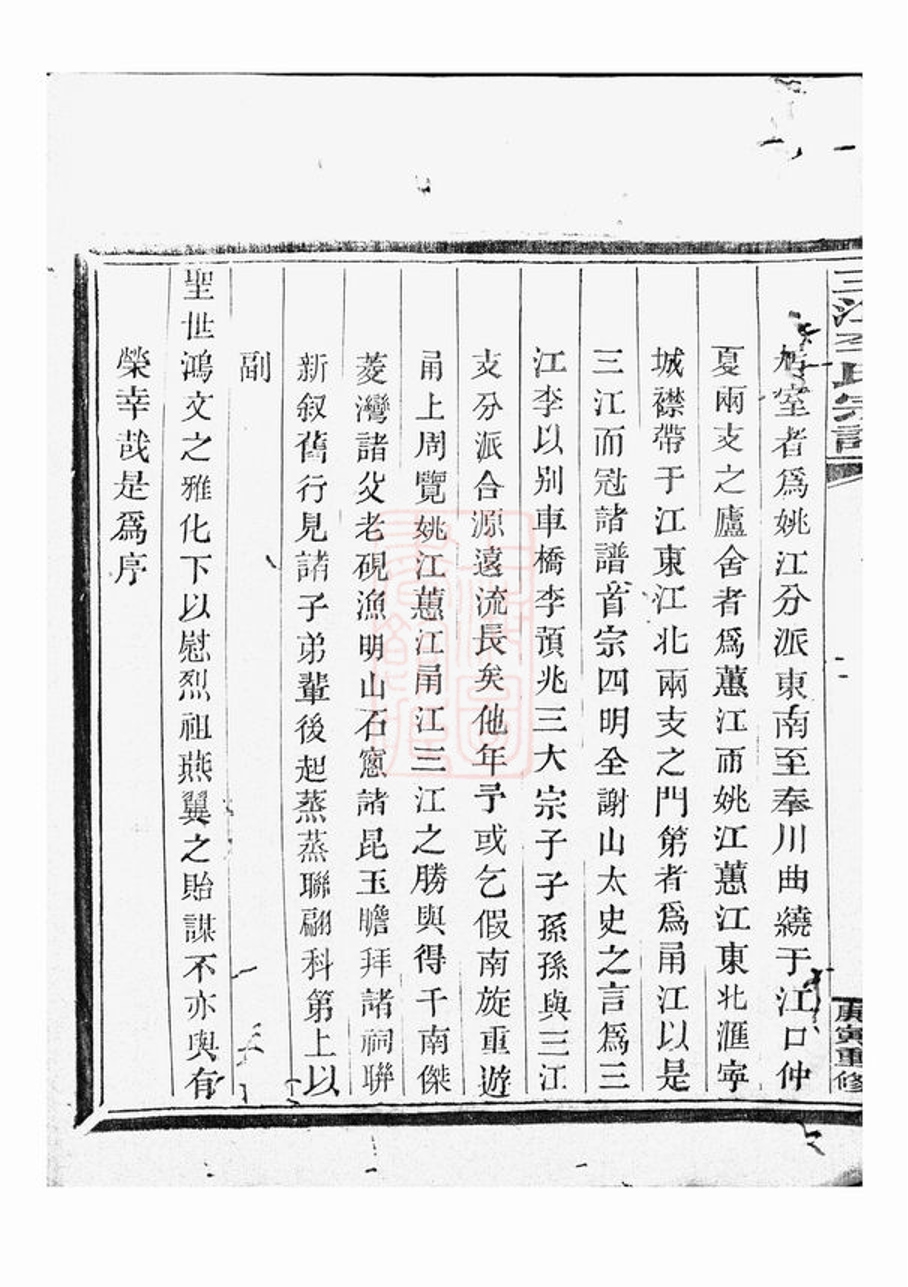 三江李氏宗譜
庚寅重修
居室者爲姚江分派東南至奉川曲繞于江口仲
夏兩支之廬舍者爲蕙江而姚江蕙江東北滙寧
城襟帶于江東江北兩支之門第者爲甬江以是
三江而冠諸譜首宗四明全謝山太史之言爲三
江李以别車橋李預兆三大宗子子孫孫與三江
支分派合源遠流長矣他年予或乞假南旋重遊
甬上周覽姚江蕙江甬江三江之勝與得千南傑
菱灣諸父老硯漁明山石窻諸昆玉瞻拜諸祠聨
新叙舊行見諸子弟輩後起蒸蒸聯翩科第上以
副
聖世鴻文之雅化下以慰烈祖燕翼之貽謀不亦與有
榮幸哉是爲序